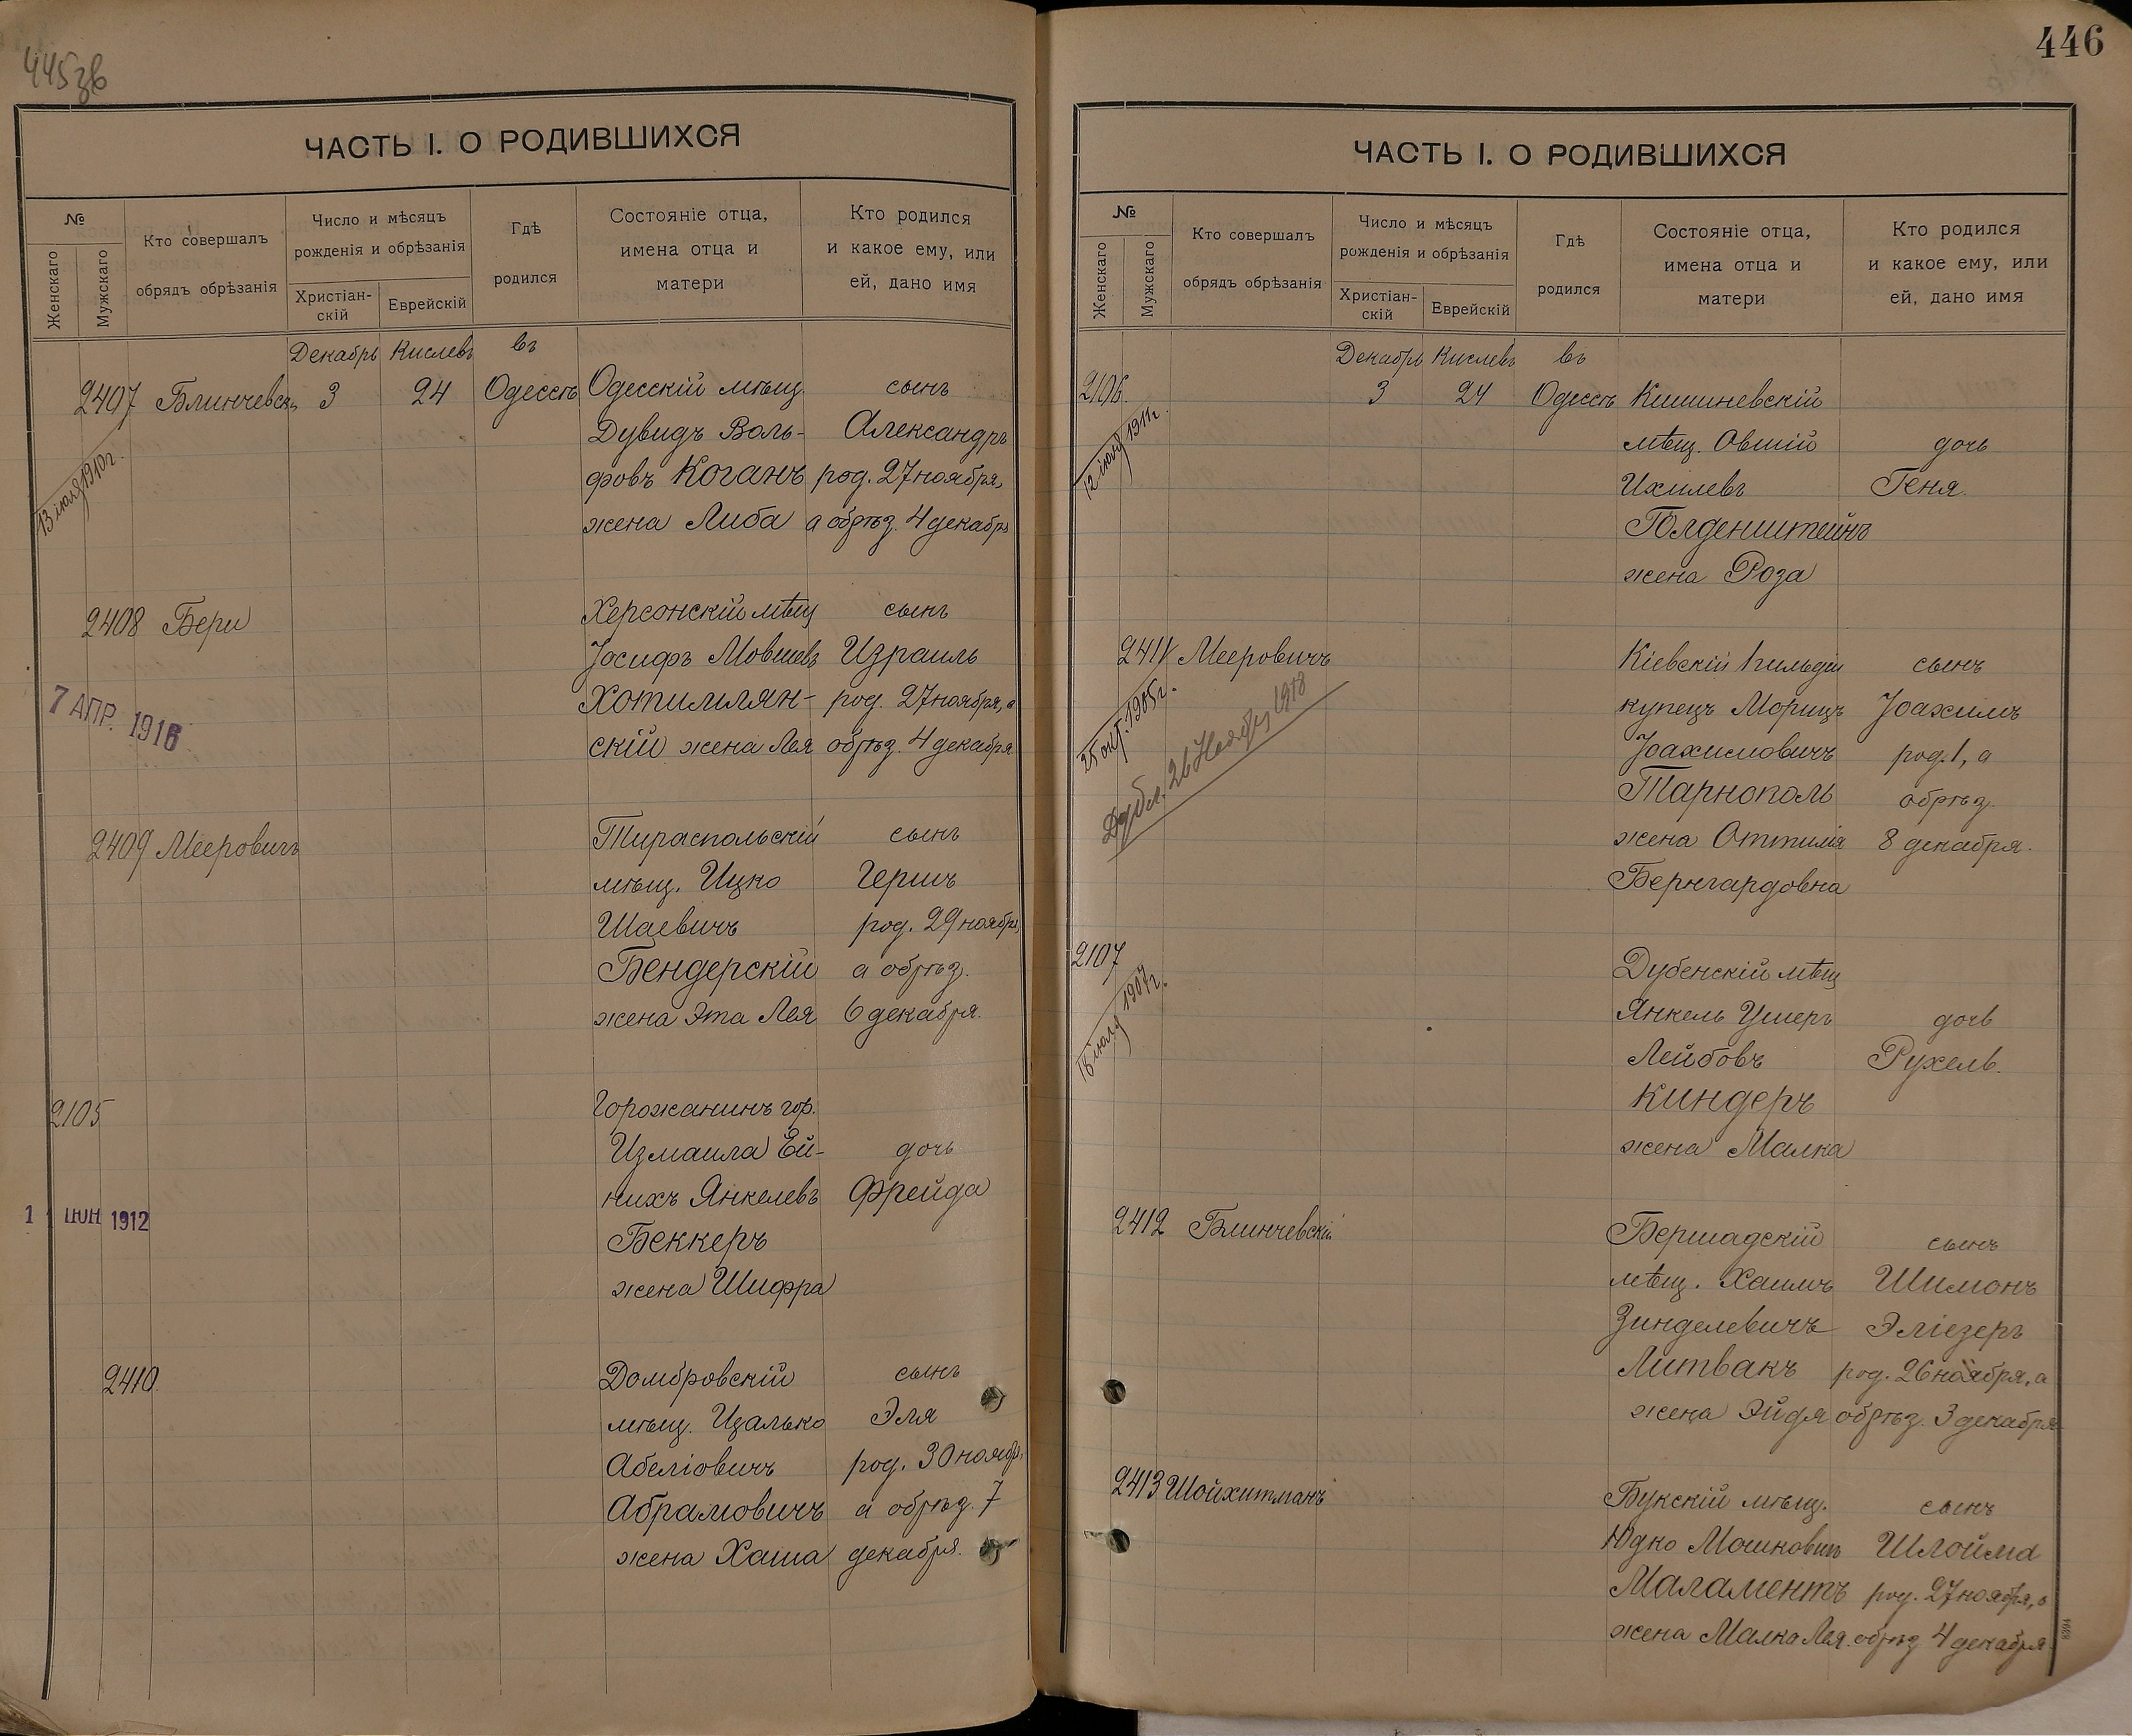 445зв
ЧАСТЬ I. О РОДИВШИХСЯ
№
Женскаго
Мужскаго
Кто совершалъ
обрядъ обрѣзанія
Число и мѣсяцъ
рожденія и обрѣзанія
Христіан-
скій
Еврейскій
Гдѣ
родился
Состояніе отца,
имена отца и
матери
Кто родился
и какое ему, или
ей, дано имя
Декабрь Кислевъ въ
2407 Блинчевск. 3 24 Одессѣ Одесскій мѣщ. сынъ
Дувидъ Воль- Александръ
фовъ Коганъ род. 27 ноября,
жена Либа а обрѣз. 4 декабря
13 июля 1910 г.
2408 Бери Херсонскій мѣщ сынъ
Іосифъ Мовшевъ Израиль
Хотимлян- род. 27 ноября, а
скій жена Лея обрѣз. 4 декабря
7 АПР. 1916
2409 Мееровичъ Тираспольскій сынъ
мѣщ. Ицко Гершъ
Шаевичъ род. 29 ноября,
Бендерскій а обрѣз.
жена Эта Лея 6 декабря.
2105 Горожанинъ гор.
Измаила Ей- дочь
нихъ Янкелевъ Фрейда
Беккеръ
жена Шифра
1 ІЮН 1912
2410 Домбровскій сынъ
мѣщ. Цалько Эля
Абеліовичъ род. 30 ноябр.
Абрамовичъ а обрѣз. 7
жена Хаша декабря.
446
ЧАСТЬ I. О РОДИВШИХСЯ
№
Женскаго
Мужскаго
Кто совершалъ
обрядъ обрѣзанія
Число и мѣсяцъ
рожденія и обрѣзанія
Христіан-
скій
Еврейскій
Гдѣ
родился
Состояніе отца,
имена отца и
матери
Кто родился
и какое ему, или
ей, дано имя
Декабрь Кислевъ въ
2106. 3 24 Одессѣ Кишиневскій
мѣщ. Овшій дочь
Ихилевъ Геня.
Голденштейнъ
жена Роза
12 1911 г.
2411 Мееровичъ Кіевскій 1 гильдіи сынъ
купецъ Морицъ Іоахимъ
Іоахимовичъ род. 1, а
Тарнополь обрѣз.
жена Оттилія 8 декабря.
Бернгардовна
25 окт. 1905 г.
Дубл. 26 Ноября 1918
2107 Дубенскій мѣщ
Янкель Ушеръ дочь
Лейбовъ Рухель.
Киндеръ
жена Малка
16 1907 г.
2412 Блинчевскій Бершадскій сынъ
мѣщ. Хаимъ Шимонъ
Зинделевичъ Эліезеръ
Литвакъ род. 26 ноября, а
жена Эйдя обрѣз. 3 декабря
2413 Шойхитманъ Букскій мѣщ. сынъ
Юдко Мошковичъ Шлойма
Маламентъ род. 27 ноября, а
жена Малка Лея. обрѣз 4 декабря